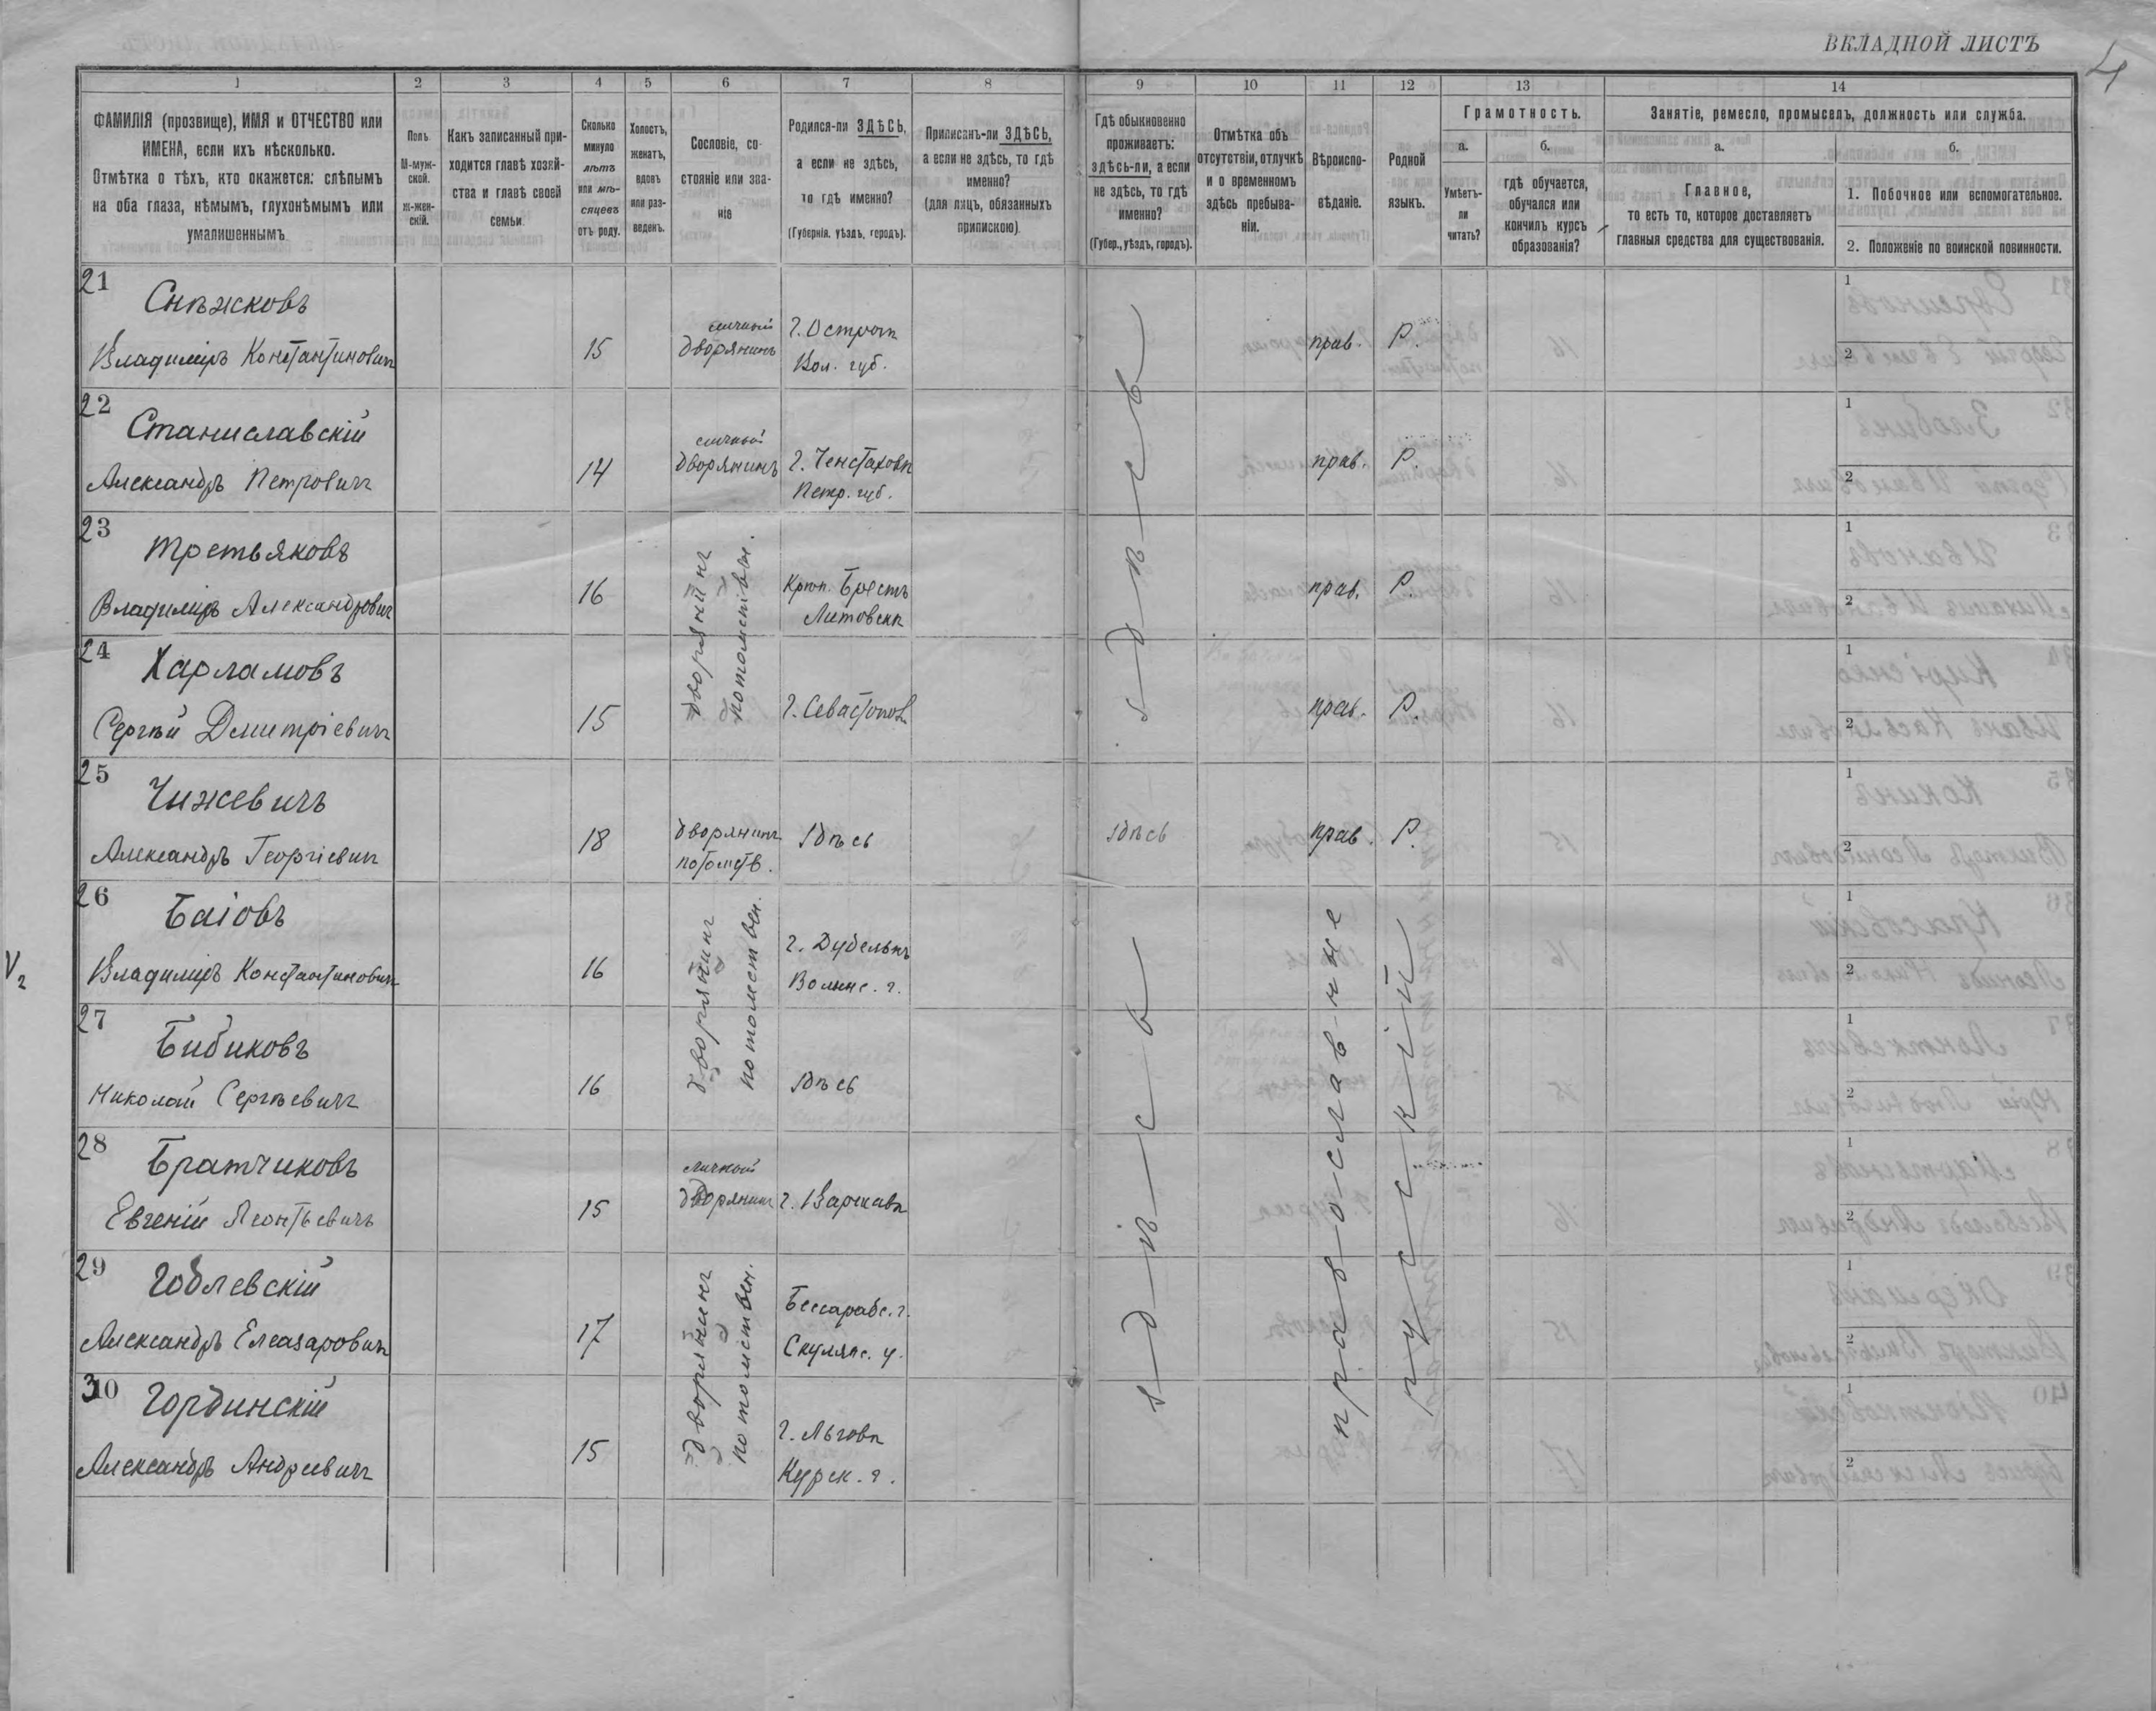 ВКЛАДНОЙ ЛИСТЪ
4
1 2 3 4 5 6 7 8 9 10 11 12 13 14
ФАМИЛІЯ (прозвище), ИМЯ и ОТЧЕСТВО или
ИМЕНА, если ихъ нѣсколько.
Отмѣтка о тѣхъ, кто окажется: слѣпымъ
на оба глаза, нѣмымъ, глухонѣмымъ или
умалишеннымъ
Полъ
М-муж-
ской.
Ж-жен-
скій.
Какъ записанный при-
ходится главѣ хозяй-
ства и главѣ своей
семьи
Сколько
минуло
лѣтъ
или мѣ-
сяцевъ
отъ роду.
Холостъ,
женатъ,
вдовъ
или раз-
веденъ.
Сословіе, со-
стояніе или зва-
ніе
Родился-ли ЗДѢСЬ,
а если не здѣсь,
то гдѣ именно?
(Губернія, уѣздъ, городъ).
Приписанъ-ли ЗДѢСЬ,
а если не здѣсь, то гдѣ
именно?
(для лицъ, обязанныхъ
припискою)
Гдѣ обыкновенно
проживаетъ:
здѣсь-ли, а если
не здѣсь, то гдѣ
именно?
(Губер., уѣздъ, городъ).
Отмѣтка объ
отсутствіи, отлучкѣ
и о временномъ
здѣсь пребыва-
ніи.
Вѣроиспо-
вѣданіе.
Родной
языкъ.
Грамотность.
а.
Умѣетъ-
ли
читать?
б.
гдѣ обучается,
обучался или
кончилъ курсъ
образованія?
Занятіе, ремесло, промыселъ, должность или служба.
а.
Главное,
то есть то, которое доставляетъ
главныя средства для существованія.
б.
1. Побочное или вспомогательное.
2. Положеніе по воинской повинности.
21 Снѣжковъ
Владиміръ Константиновичъ
15
личный
дворянинъ
г. Острогъ
Вол. губ.
прав. Р.
1
2
22 Станиславскій
Александръ Петровичъ
14
личный
дворянинъ
г. Ченстаховъ
Петр. губ.
прав. Р.
1
2
23 Третьяковъ
Владиміръ Александровичъ
16
дворянинъ
потомствен.
Крѣп. Брестъ
Литовскъ
здѣсь
прав. Р.
1
2
24 Харламовъ
Сергѣй Дмитріевичъ
15
г. Севастополь
прав. Р.
1
2
25 Чижевичъ
Александръ Георгіевичъ
18
дворянинъ
потомств.
Здѣсь
здѣсь
прав. Р.
1
2
26 Баіовъ
Владиміръ Константиновичъ
16
дворянинъ
потомствен.
Волынс. г.
здѣсь
православные
русскій
1
2
27 Бибиковъ
Николай Сергѣевичъ
16
Здѣсь
1
2
28 Братчиковъ
Евгеній Леонтьевичъ
15
личный
дворянинъ
г. Варшава
1
2
29 Гоблевскій
Александръ Елеазаровичъ
17
дворянинъ
потомствен.
Бессарабс. г.
Скулянс. у.
1
2
30 Гординскій
Александръ Андреевичъ
15
г. Льговъ
Курск. г.
1
2